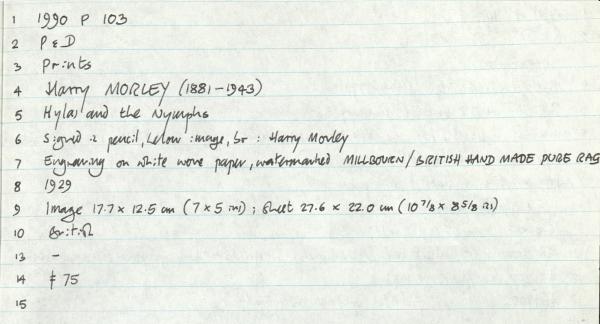 1 1990 P 103
2 P & D
3 Prints
4 Harry MORLEY (1881-1943)
5 Hylas and the Nymphs
6 Signed in pencil, below image, br : Harry Morley
7 Engraving on white wove paper, watermarked MILLBOURN / BRITISH HAND MADE PURE RAG
8 1929
9 Image 17.7 x 12.5 cm (7 x 5 ins) ; sheet 27.6 x 22.0 cm (10 7/8 x 8 5/8 ins)
10 British
13 -
14 75
15